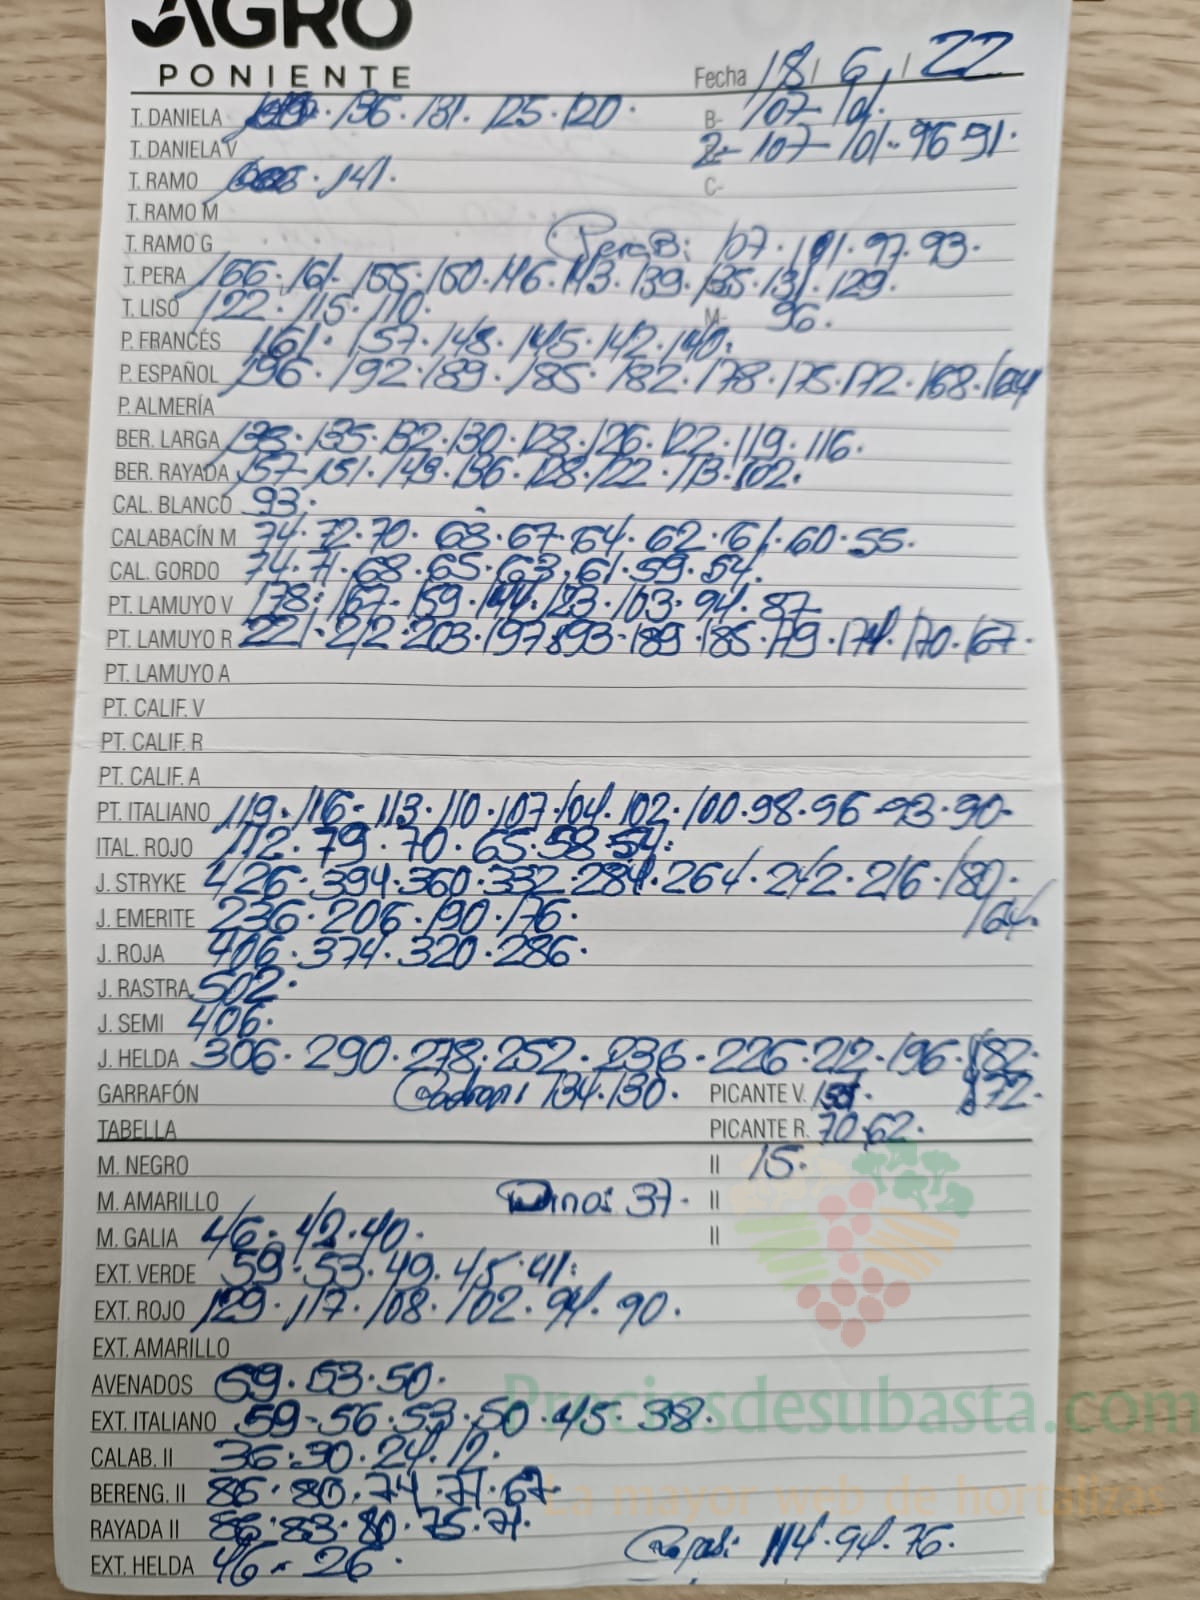 AGRO
PONIENTE
Fecha 18/6/22
T. DANIELA 136.131.125.120. B- 107-101.
T. DANIELA V 2-107-101-96 91.
T. RAMO 141. C-
T. RAMO M
T. RAMO G Pera B: 107.101.97.93.
T. PERA 166.161.155.150.146.143.139.135.131.129.
T. LISO 122.115.110. M- 96.
P. FRANCÉS 161.157.148.145.142.140.
P. ESPAÑOL 196.192.189.185.182.178.175.172.168.164
P. ALMERÍA
BER. LARGA 138.135.132.130.128.126.122.119.116.
BER. RAYADA 157-151.149.136.128.122.113.102.
CAL. BLANCO 93.
CALABACÍN M 74.72.70.68.67.64.62.61.60.55.
CAL. GORDO 74.71.68.65.63.61.59.54.
PT. LAMUYO V 178.167-159.144.123.103.94.87
PT. LAMUYO R 221.212.203.197.193-189.185.179.174.170.167.
PT. LAMUYO A
PT. CALIF. V
PT. CALIF. R
PT. CALIF. A
PT. ITALIANO 119.116-113.110.107.104.102.100.98.96-93.90-
ITAL. ROJO 112.79.70.65.58.54.
J. STRYKE 426.394.360.332.284.264.242.216.180.
J. EMERITE 236.206.190.176. 164.
J. ROJA 406.374.320.286.
J. RASTRA 502.
J. SEMI 406.
J. HELDA 306.290.278.252.236.226.212.196.182.
GARRAFÓN 134.130. PICANTE V. 172.
TABELLA PICANTE R. 70.62.
M. NEGRO II 15.
M. AMARILLO 37. II
M. GALIA 46.42.40. II
EXT. VERDE 59.53.49.45.41.
EXT. ROJO 129.117.108.102.94.90.
EXT. AMARILLO
AVENADOS 59.53.50.
EXT. ITALIANO 59-56.53.50.45.38.
CALAB. II 36.30.24.12.
BERENG. II 86.80.74.71.67
RAYADA II 86.83.80.75.71.
EXT. HELDA 46-26. 114.94.76.
Preciosdesubasta.com
La mayor web de hortalizas